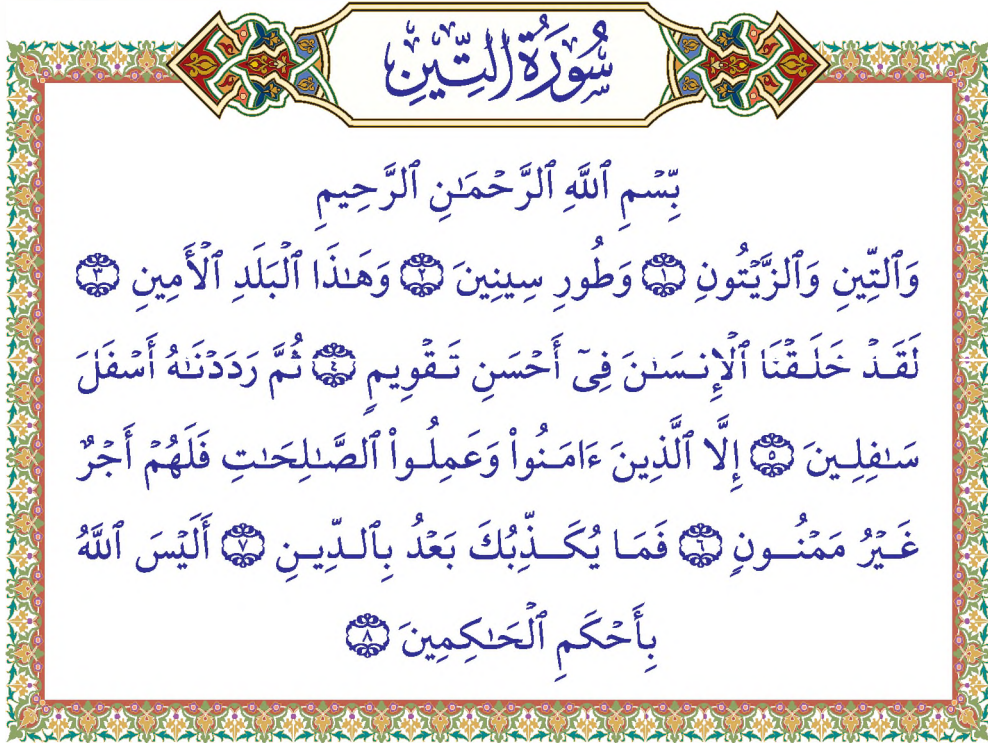 سُورَةُ التِّينِ
بِّسۡمِ ٱللَّهِ ٱلرَّحۡمَٰنِ ٱلرَّحِيمِ
وَٱلتِّينِ وَٱلزَّيۡتُونِ ۝١ وَطُورِ سِينِينَ ۝٢ وَهَٰذَا ٱلۡبَلَدِ ٱلۡأَمِينِ ۝٣
لَقَدۡ خَلَقۡنَا ٱلۡإِنسَٰنَ فِىٓ أَحۡسَنِ تَقۡوِيمٖ ۝٤ ثُمَّ رَدَدۡنَٰهُ أَسۡفَلَ
سَٰفِلِينَ ۝٥ إِلَّا ٱلَّذِينَ ءَامَنُواْ وَعَمِلُواْ ٱلصَّٰلِحَٰتِ فَلَهُمۡ أَجۡرٌ
غَيۡرُ مَمۡنُونٖ ۝٦ فَمَا يُكَذِّبُكَ بَعۡدُ بِٱلدِّينِ ۝٧ أَلَيۡسَ ٱللَّهُ
بِأَحۡكَمِ ٱلۡحَٰكِمِينَ ۝٨